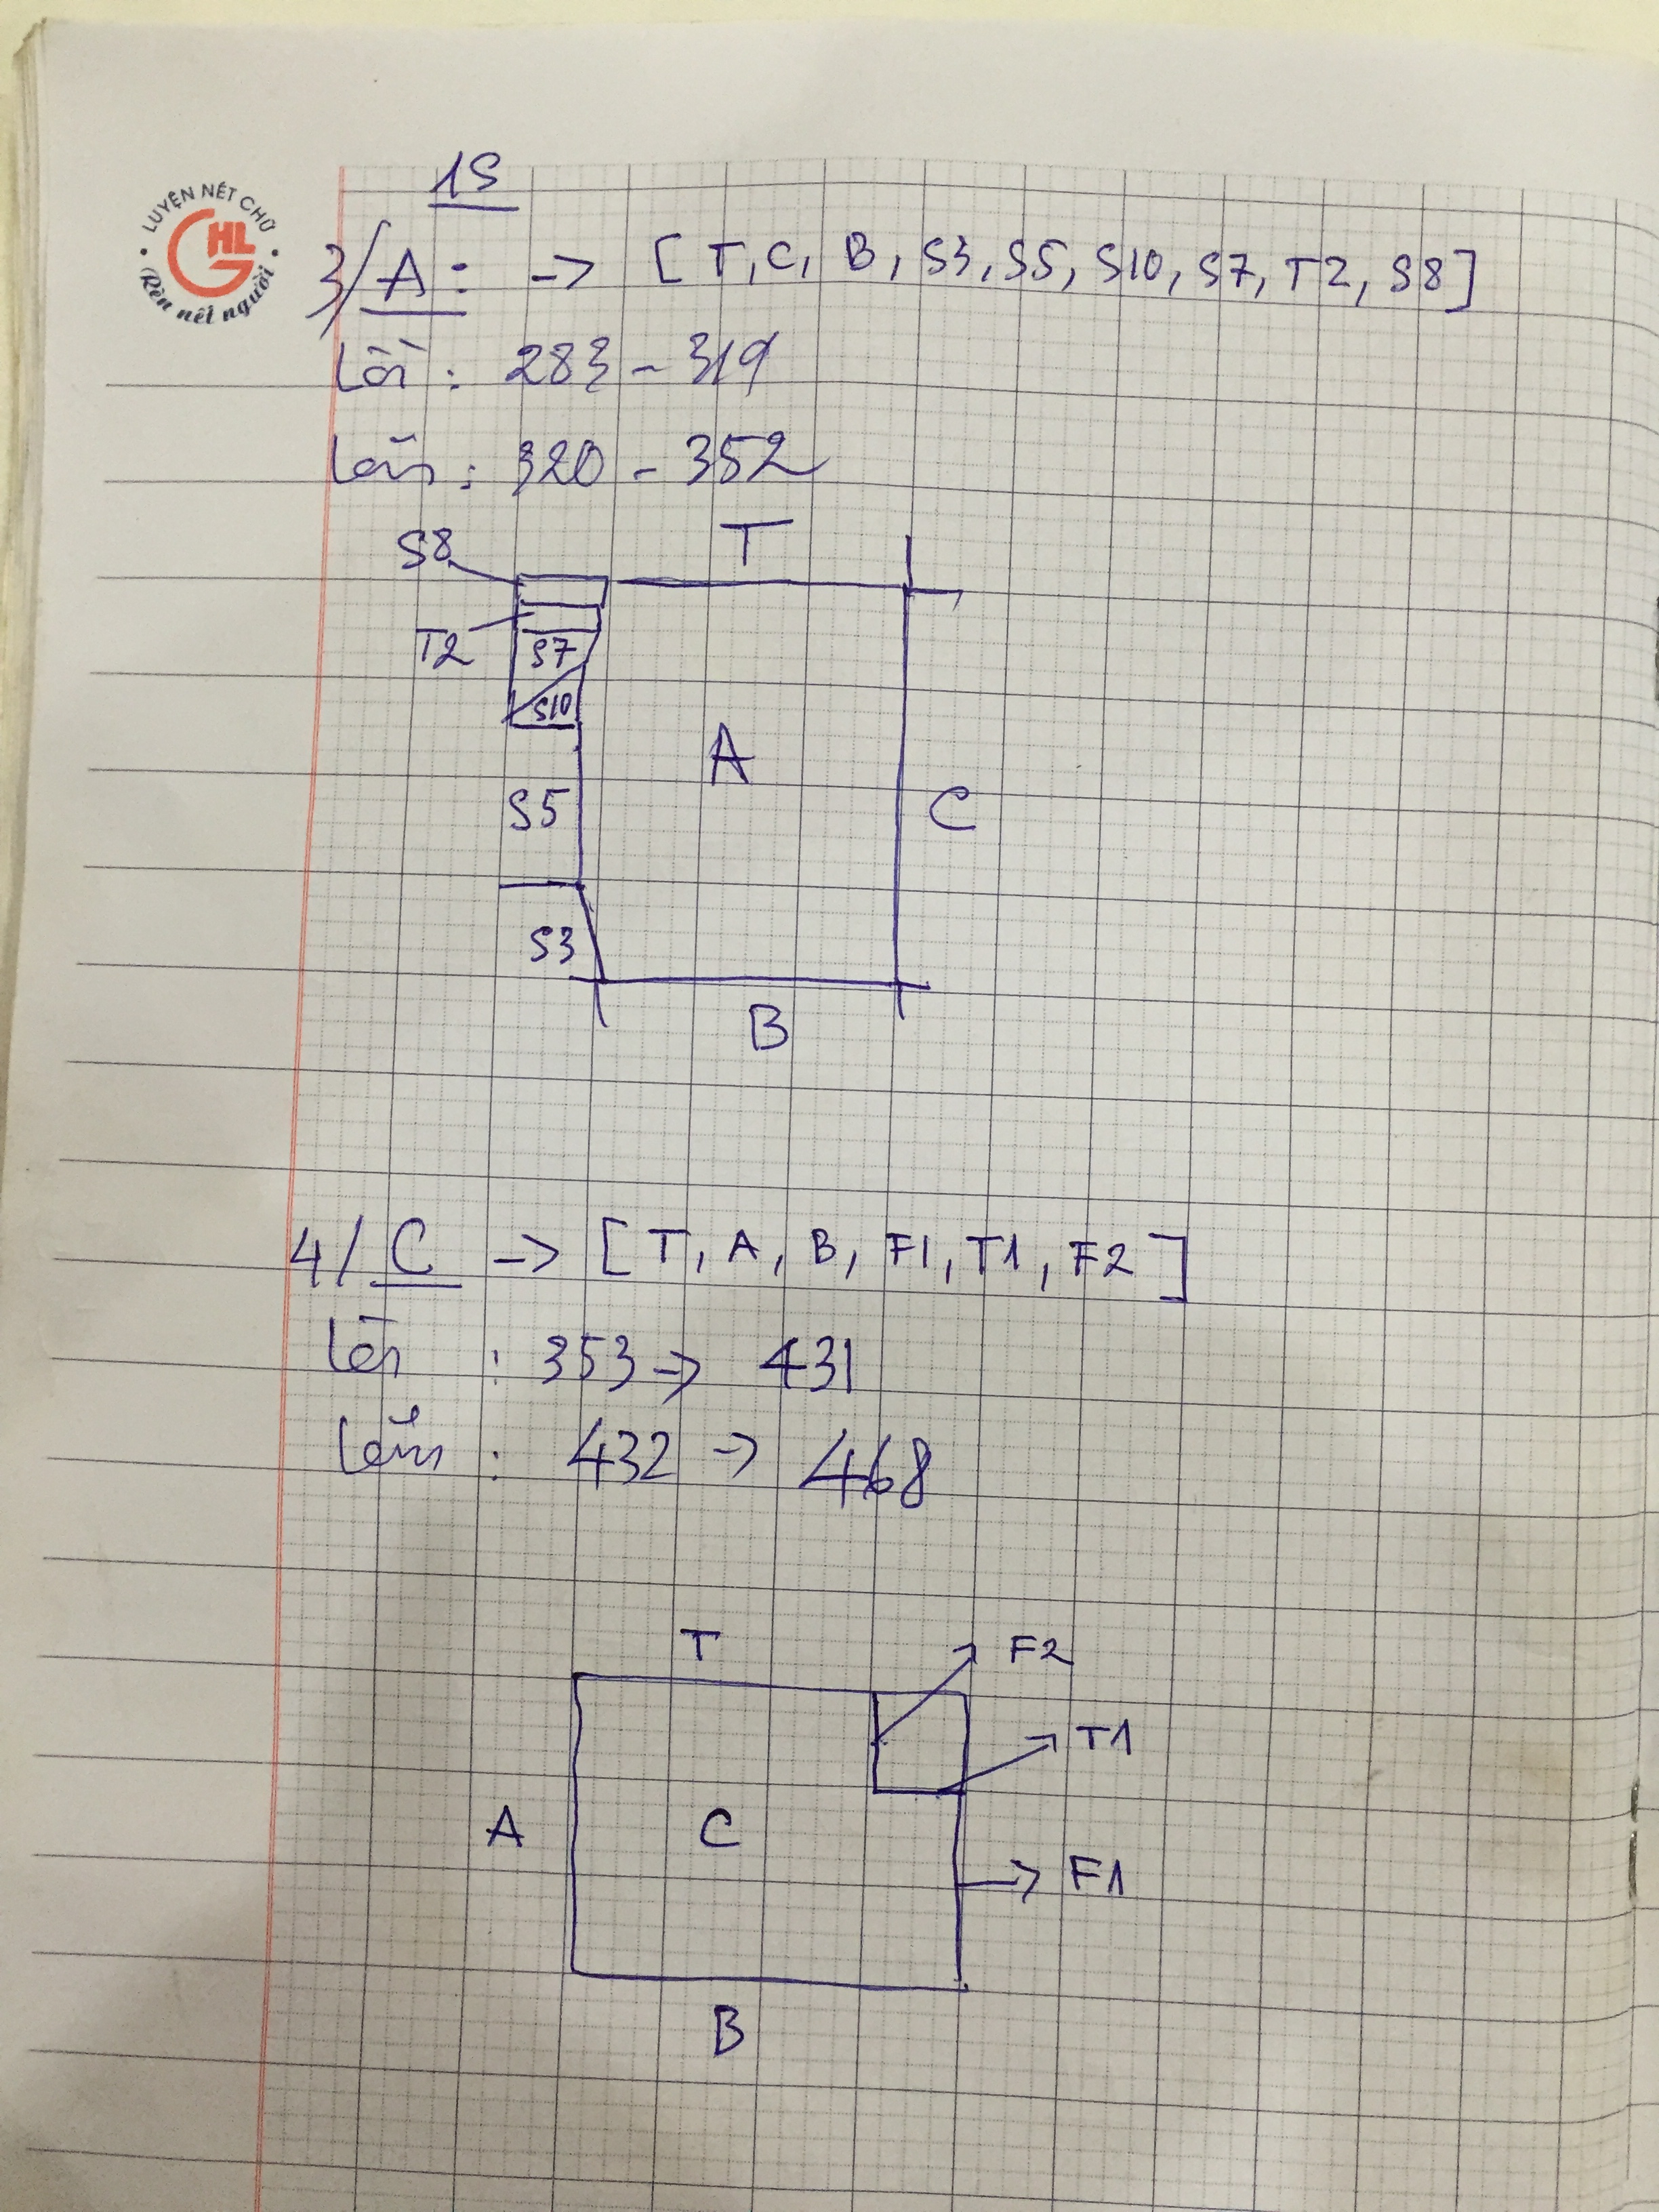 LUYỆN NÉT CHỮ
HL
Rèn nết người
1S
3/ A: -> [T, C, B, S3, S5, S10, S7, T2, S8]
Lồi: 283 - 319
Lõm: 320 - 352
S8
T
T2
S7
S10
A
S5
C
S3
B
4/ C -> [T, A, B, F1, T1, F2]
: 353 -> 431
: 432 -> 468
T
F2
T1
A
C
F1
B